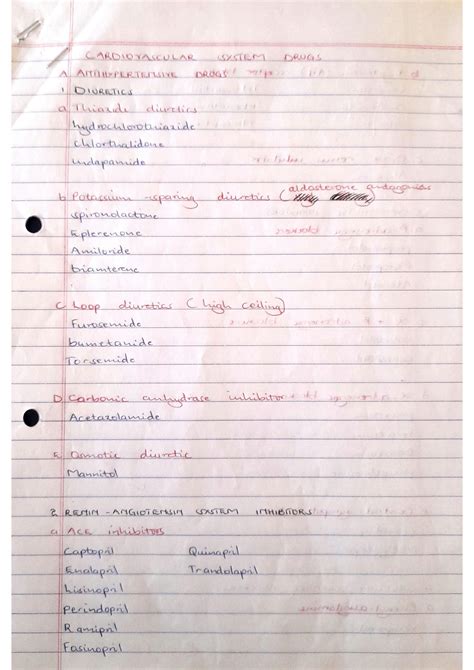 CARDIOVASCULAR SYSTEM DRUGS
A. ANTIHYPERTENSIVE DRUGS
1. DIURETICS
a Thiazide diuretics
hydrochlorothiazide
Chlorthalidone
Indapamide
b Potassium-sparing diuretics (aldosterone antagonists
Spironolactone
Eplerenone
Amiloride
triamterene
C Loop diuretics (high ceiling)
Furosemide
bumetanide
Torsemide
D Carbonic anhydrase inhibitor
Acetazolamide
E Osmotic diuretic
Mannitol
2 RENIN-ANGIOTENSIN SYSTEM INHIBITORS
a ACE inhibitors
Captopril Quinapril
Enalapril Trandolapril
Lisinopril
Perindopril
Ramipril
Fosinopril